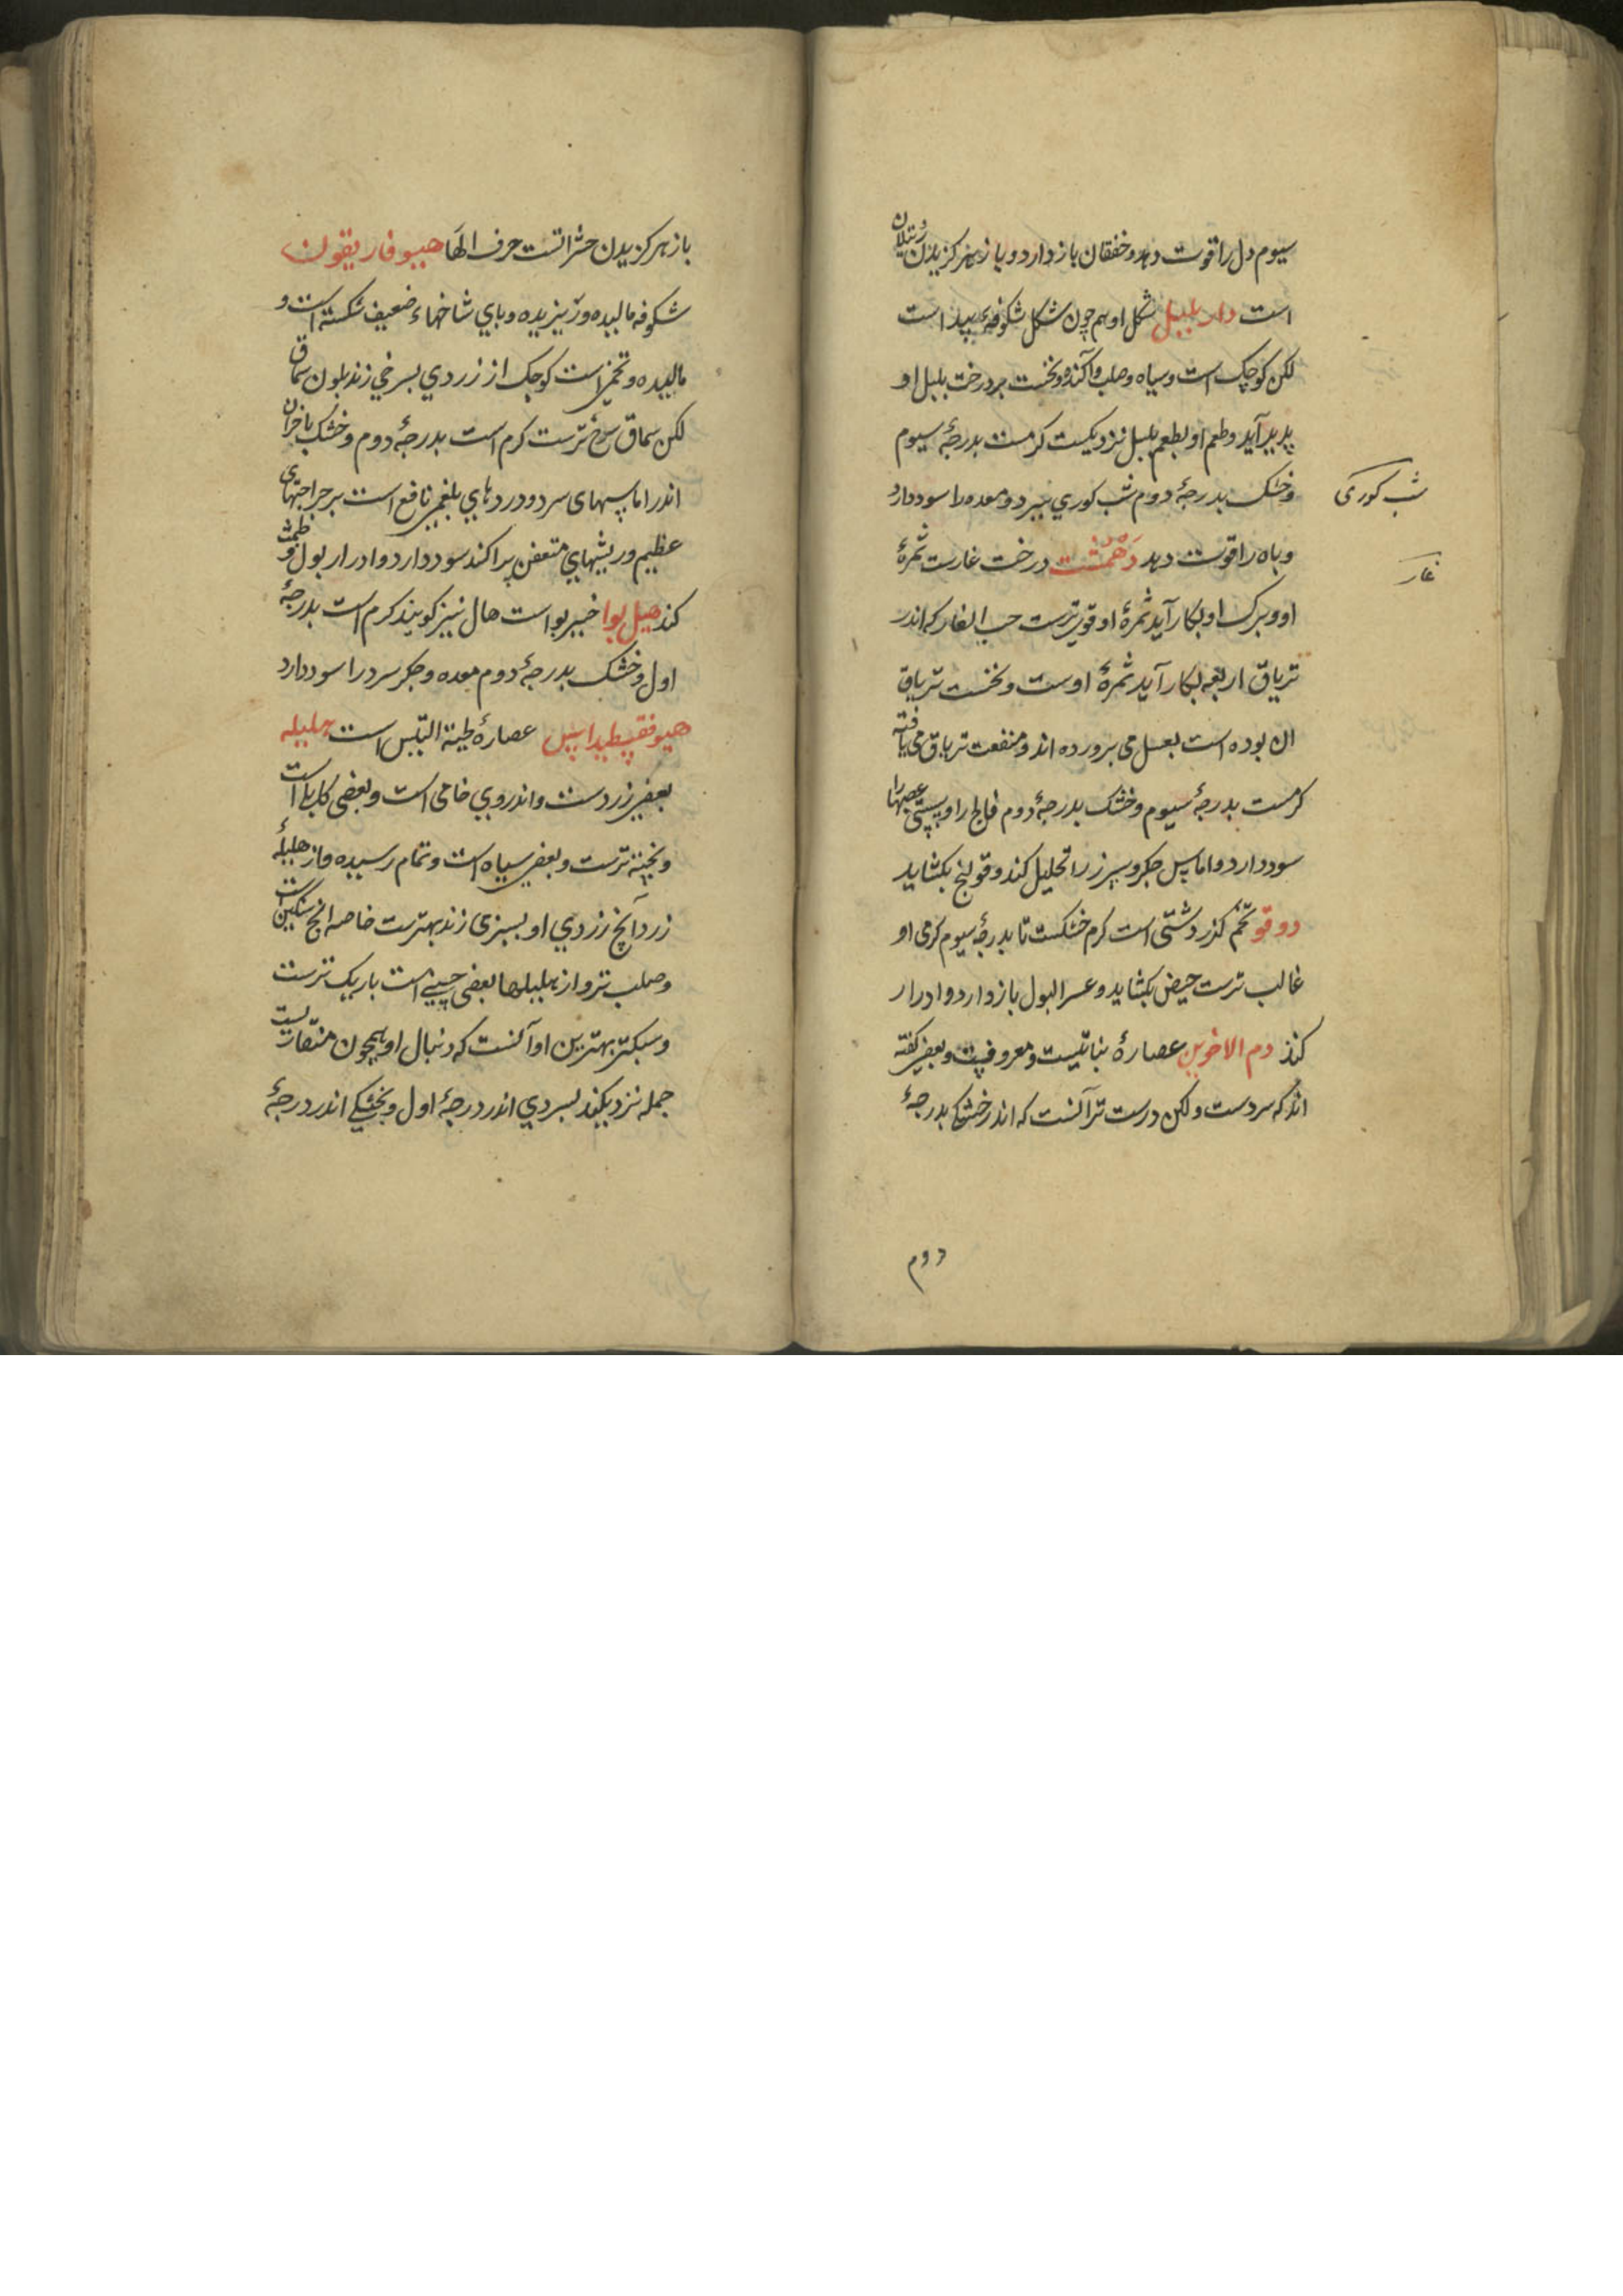 سیوم دل را قوت دهد و خفقان باز دارد و باز زهر کزیدن رتیلان
است دار بلبل شکل او هم چون شکل شکوفهٔ بید است
لکن کوچک است و سیاه و صلب و آکنده و نخست بر درخت بلبل او
پدید آید و طعم او بطعم بلبل نزدیکست کرمست بدرجهٔ سیوم
و خشک بدرجهٔ دوم شب کوری ببرد و معده را سود دارد
شب کوری
و باه را قوت دهد دهمست درخت غارست ثمرهٔ
غار
او و برک او بکار آید ثمرهٔ او قوی ترست حب الغار که اندر
تریاق اربعه بکار آید ثمرهٔ اوست و نخست تریاق
ان بوده است بعسل می برورده اند و منفعت تریاق می یافته
کرمست بدرجهٔ سیوم و خشک بدرجهٔ دوم فالج را و سستی عصبها را
سود دارد و اماس جکر و سپرز را تحلیل کند و قولنج بکشاید
دوقو تخم کذر دشتی است کرم خشکست تا بدرجهٔ سیوم کرمی او
غالب ترست حیض بکشاید و عسر البول باز دارد و ادرار
کند دم الاخوین عصارهٔ نباتیست و معروفست و بعضی کفته
اند که سردست و لکن درست تر آنست که اندر خشکی بدرجهٔ
دوم
باز هر کزیدن حشراتست حرف الها هیوفاریقون
شکوفه مالیده و زیزیده و بای شاخهاء ضعیف شکسته است و
مالیده و تخمی است کوجک از زردی بسرخی زند بلون سماق
لکن سماق سرخ ترست کرم است بدرجهٔ دوم و خشک باخران
اندر اماسهای سرد و دردهای بلغمی نافع است بر جراحتهای
عظیم و ریشهای متعفن براکند سود دارد و ادرار بول و طمث
کند هیل بوا خیر بوا است هال نیز کویند کرم است بدرجهٔ
اول و خشک بدرجهٔ دوم معده و جکر سرد را سود دارد
هیوفقسطیداس عصارهٔ لحیة التیس است هلیله
بعضی زردست و اندر وی خامی است و بعضی کابلی است
و پخته ترست و بعضی سیاه است و تمام رسیده و از هلیلهٔ
زرد آنچ زردی او بسبزی زند بهترست خاصه انج سنکین
و صلب تر و از هلیلها بعضی جینی است باریک ترست
و سبکتر بهترین او آنست که دنبال او همچون منقاریست
جمله نزدیکند بسردی اندر درجهٔ اول و بخشکی اندر درجهٔ